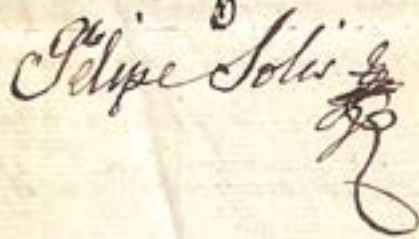 Felipe Solis